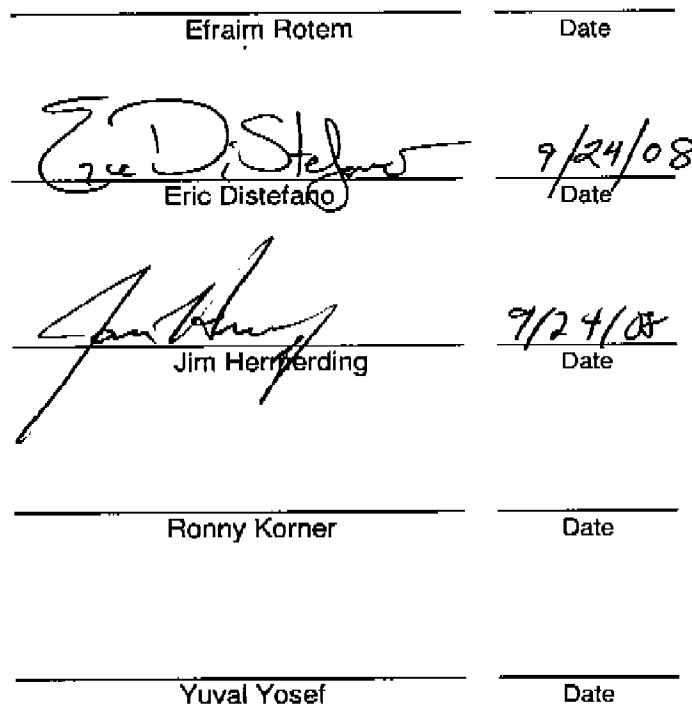 Efraim Rotem Date
Eric DiStefano 9/24/08
Eric Distefano Date
9/24/08
Jim Hermerding Date
Ronny Korner Date
Yuval Yosef Date